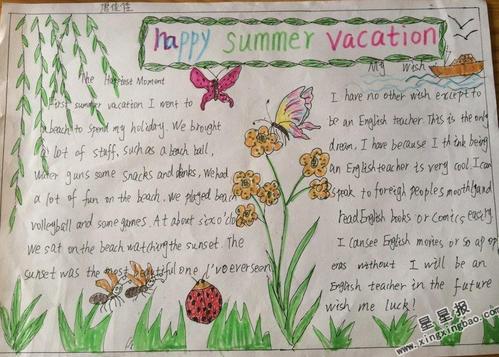 happy summer vacation
The Happiest Moment
First summer vacation I went to
a beach to spend my holiday. We brought
a lot of staff, such as a beach ball,
water guns some snacks and drinks. We had
a lot of fun on the beach. We played beach
volleyball and some games. At about six o'clo
we sat on the beach watching the sunset. The
sunset was the most beautiful one I've ever seen
My wish
I have no other wish except to
be an English teacher. This is the only
dream, I have because I think being
an English teacher is very cool. I can
speak to foreigh peoples moothly and
read English books or comics easily
I can see English movies, or soap op
eras without I will be an
English teacher in the future
wish me luck!
星星报
www.xingxingbao.com